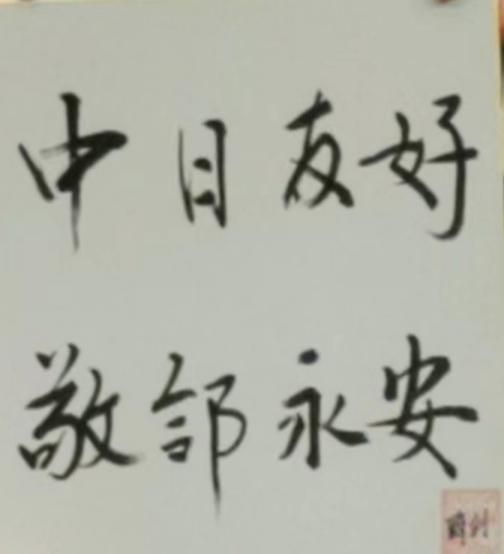 中日友好
敬永安